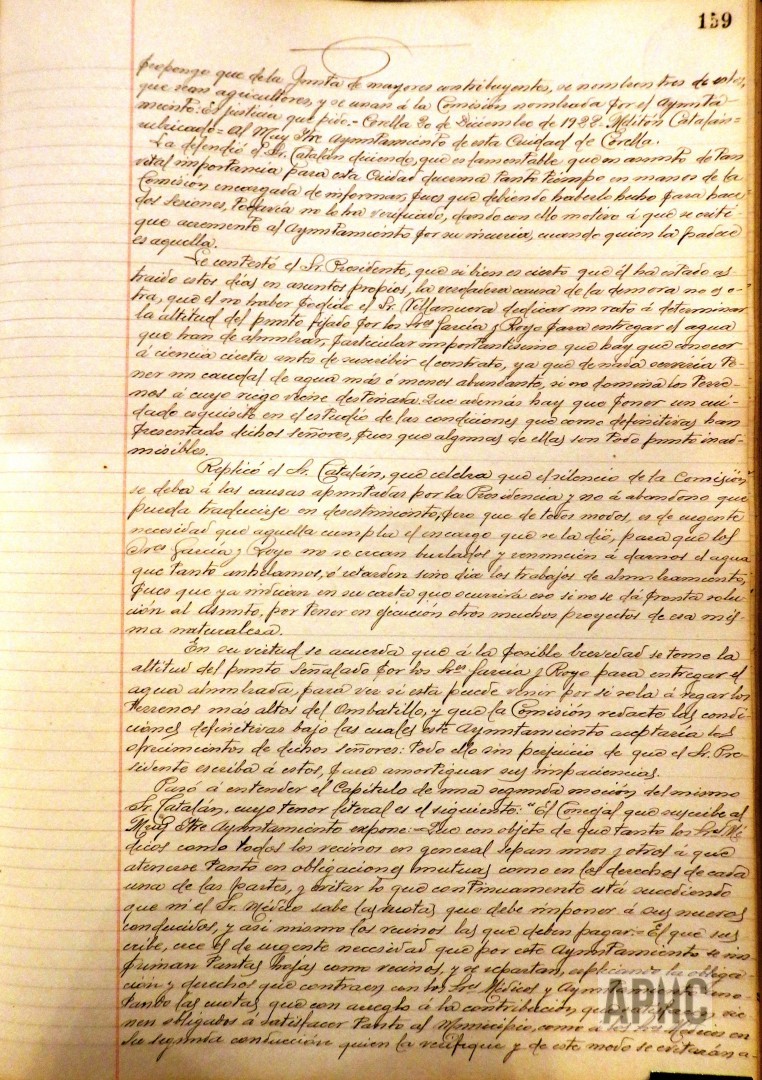 159
propongo que de la Junta de mayores contribuyentes, se nombren tres de estos,
que sean agricultores, y se unan á la Comisión nombrada por el Ayunta-
miento. Es justicia que pide.- Corella 20 de Diciembre de 1928. Melitón Catalán=
rubricado= Al Muy Iltre Ayuntamiento de esta Ciudad de Corella.
La defendió el Sr. Catalán diciendo, que es lamentable que un asunto de tan
vital importancia para esta Ciudad duerma tanto tiempo en manos de la
Comisión encargada de informar, pues que debiendo haberlo hecho para hace
dos sesiones, todavía no lo ha verificado, dando con ello motivo á que se criti-
que acremente al Ayuntamiento por su incuria, cuando quien la padece
es aquella.
Le contestó el Sr. Presidente, que si bien es cierto que él ha estado abs-
traido estos días en asuntos propios, la verdadera causa de la demora no es o-
tra, que el no haber podido el Sr. Villanueva dedicar un rato á determinar
la altitud del punto fijado por los Sres García y Royo para entregar el agua
que han de alumbrar, particular importantísimo que hay que conocer
á ciencia cierta antes de suscribir el contrato, ya que de nada serviría te-
ner un caudal de agua más ó menos abundante, si no domina los terre-
nos á cuyo riego viene destinada. Que además hay que poner un cui-
dado esquisito en el estudio de las condiciones que como definitivas han
presentado dichos señores, pues que algunas de ellas son todo punto inad-
misibles.
Replicó el Sr. Catalán, que celebra que el silencio de la Comisión
se deba á las causas apuntadas por la Presidencia y no á abandono que
pueda traducirse en desestimiento, pero que de todos modos, es de urgente
necesidad que aquella cumpla el encargo que se la dió, para que los
Sres García y Royo no se crean burlados y renuncien á darnos el agua
que tanto anhelamos, ó retarden sine dia los trabajos de alumbramiento,
pues que ya inician en su carta que ocurrirá eso si no se dá pronta solu-
ción al asunto, por tener en ejecución otros muchos proyectos de esa mis-
ma naturaleza.
En su virtud se acuerda que á la posible brevedad se tome la
altitud del punto señalado por los Sres García y Royo para entregar el
agua alumbrada, para ver si esta puede venir por si sola á regar los
terrenos más altos del Ombatillo, y que la Comisión redacte las condi-
ciones definitivas bajo las cuales este Ayuntamiento aceptaría los
ofrecimientos de dichos señores: todo ello sin perjuicio de que el Sr. Pre-
sidente escriba á estos, para amortiguar sus impaciencias.
Pasó á entender el Capítulo de una segunda moción del mismo
Sr. Catalán, cuyo tenor literal es el siguiente: "El Concejal que suscribe al
Muy Iltre Ayuntamiento expone:= Que con objeto de que tanto los Sres Mé-
dicos como todos los vecinos en general sepan unos y otros á que
atenerse tanto en obligaciones mutuas como en los derechos de cada
una de las partes, y evitar lo que continuamente está sucediendo
que ni el Sr. Médico sabe las cuotas que debe imponer á sus nuevos
conducidos, y asi mismo los vecinos las que deben pagar.= El que sus-
cribe, cree es de urgente necesidad que por este Ayuntamiento se im-
priman tantas hojas como vecinos, y se repartan, explicando la obliga-
ción y derechos que contraen con los Sres Médicos y Ayuntamiento
tando las cuotas que con arreglo á la contribución que vie-
nen obligados á satisfacer tanto al Municipio, como á los Médicos en
su segunda conducción quien la verifique y de este modo se evitarán a-
APHC